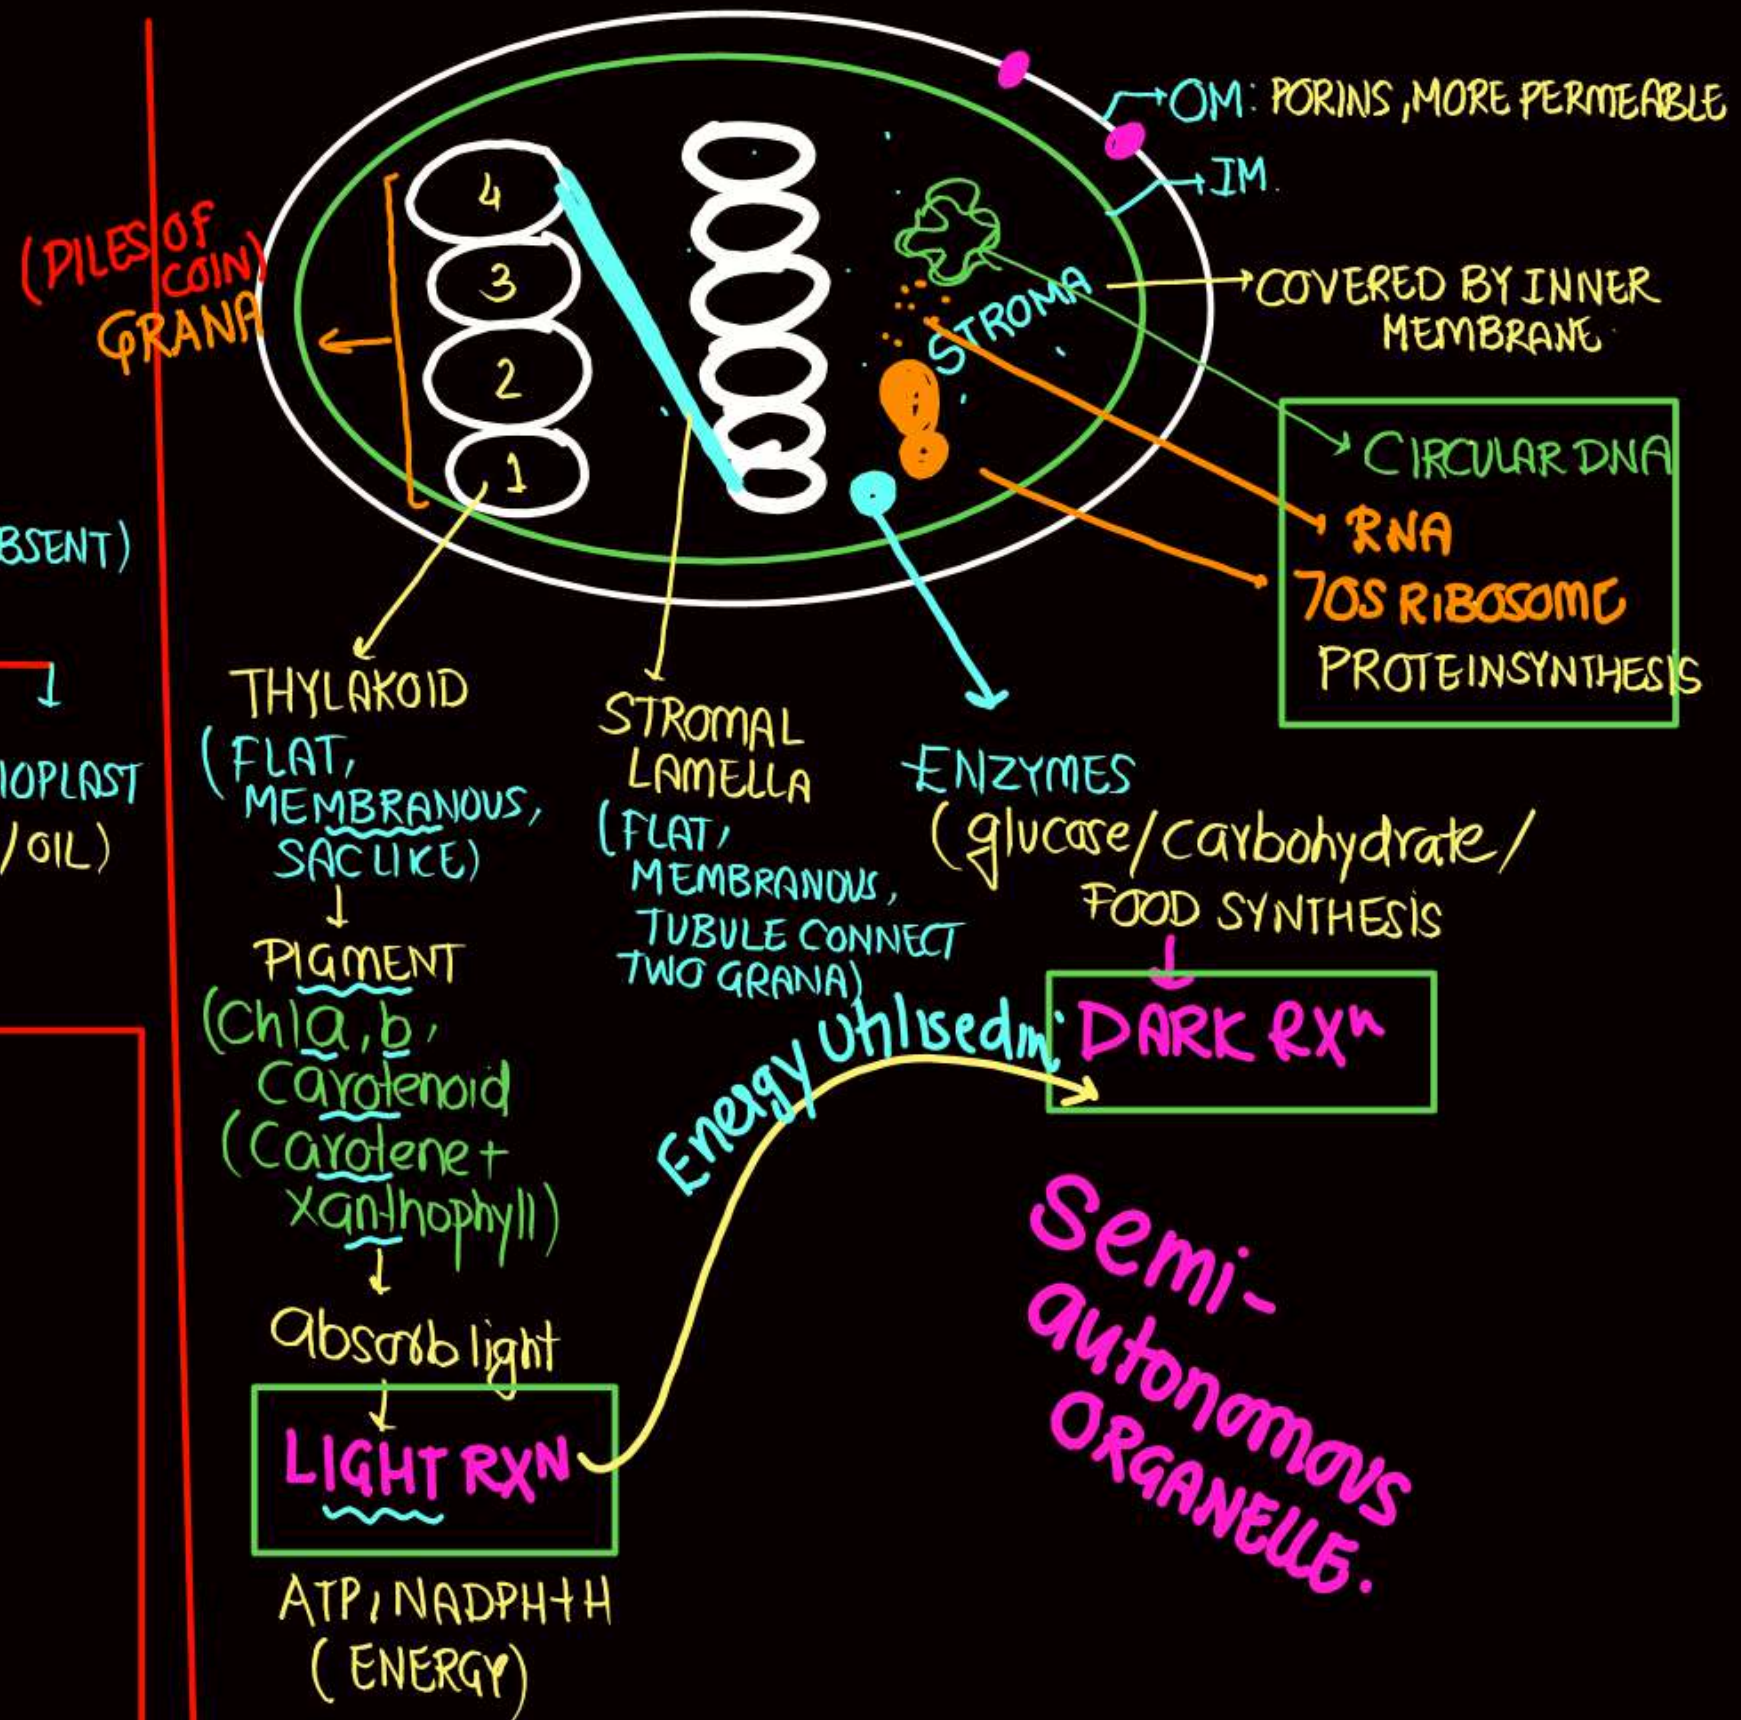 OM: PORINS, MORE PERMEABLE
IM.
(PILES OF
COIN)
GRANA
4
3
2
1
STROMA
COVERED BY INNER
MEMBRANE
CIRCULAR DNA
RNA
70S RIBOSOME
PROTEIN SYNTHESIS
BSENT)
IOPLAST
/OIL)
THYLAKOID
(FLAT,
MEMBRANOUS,
SAC LIKE)
PIGMENT
(Chl a, b,
Carotenoid
(Carotene+
Xanthophyll)
absorb light
LIGHT RXN
ATP, NADPH+H
(ENERGY)
STROMAL
LAMELLA
(FLAT,
MEMBRANOUS,
TUBULE CONNECT
TWO GRANA)
ENZYMES
(glucose/carbohydrate/
FOOD SYNTHESIS
Energy Utilised in:
DARK RXn
Semi-
autonomous
ORGANELLE.